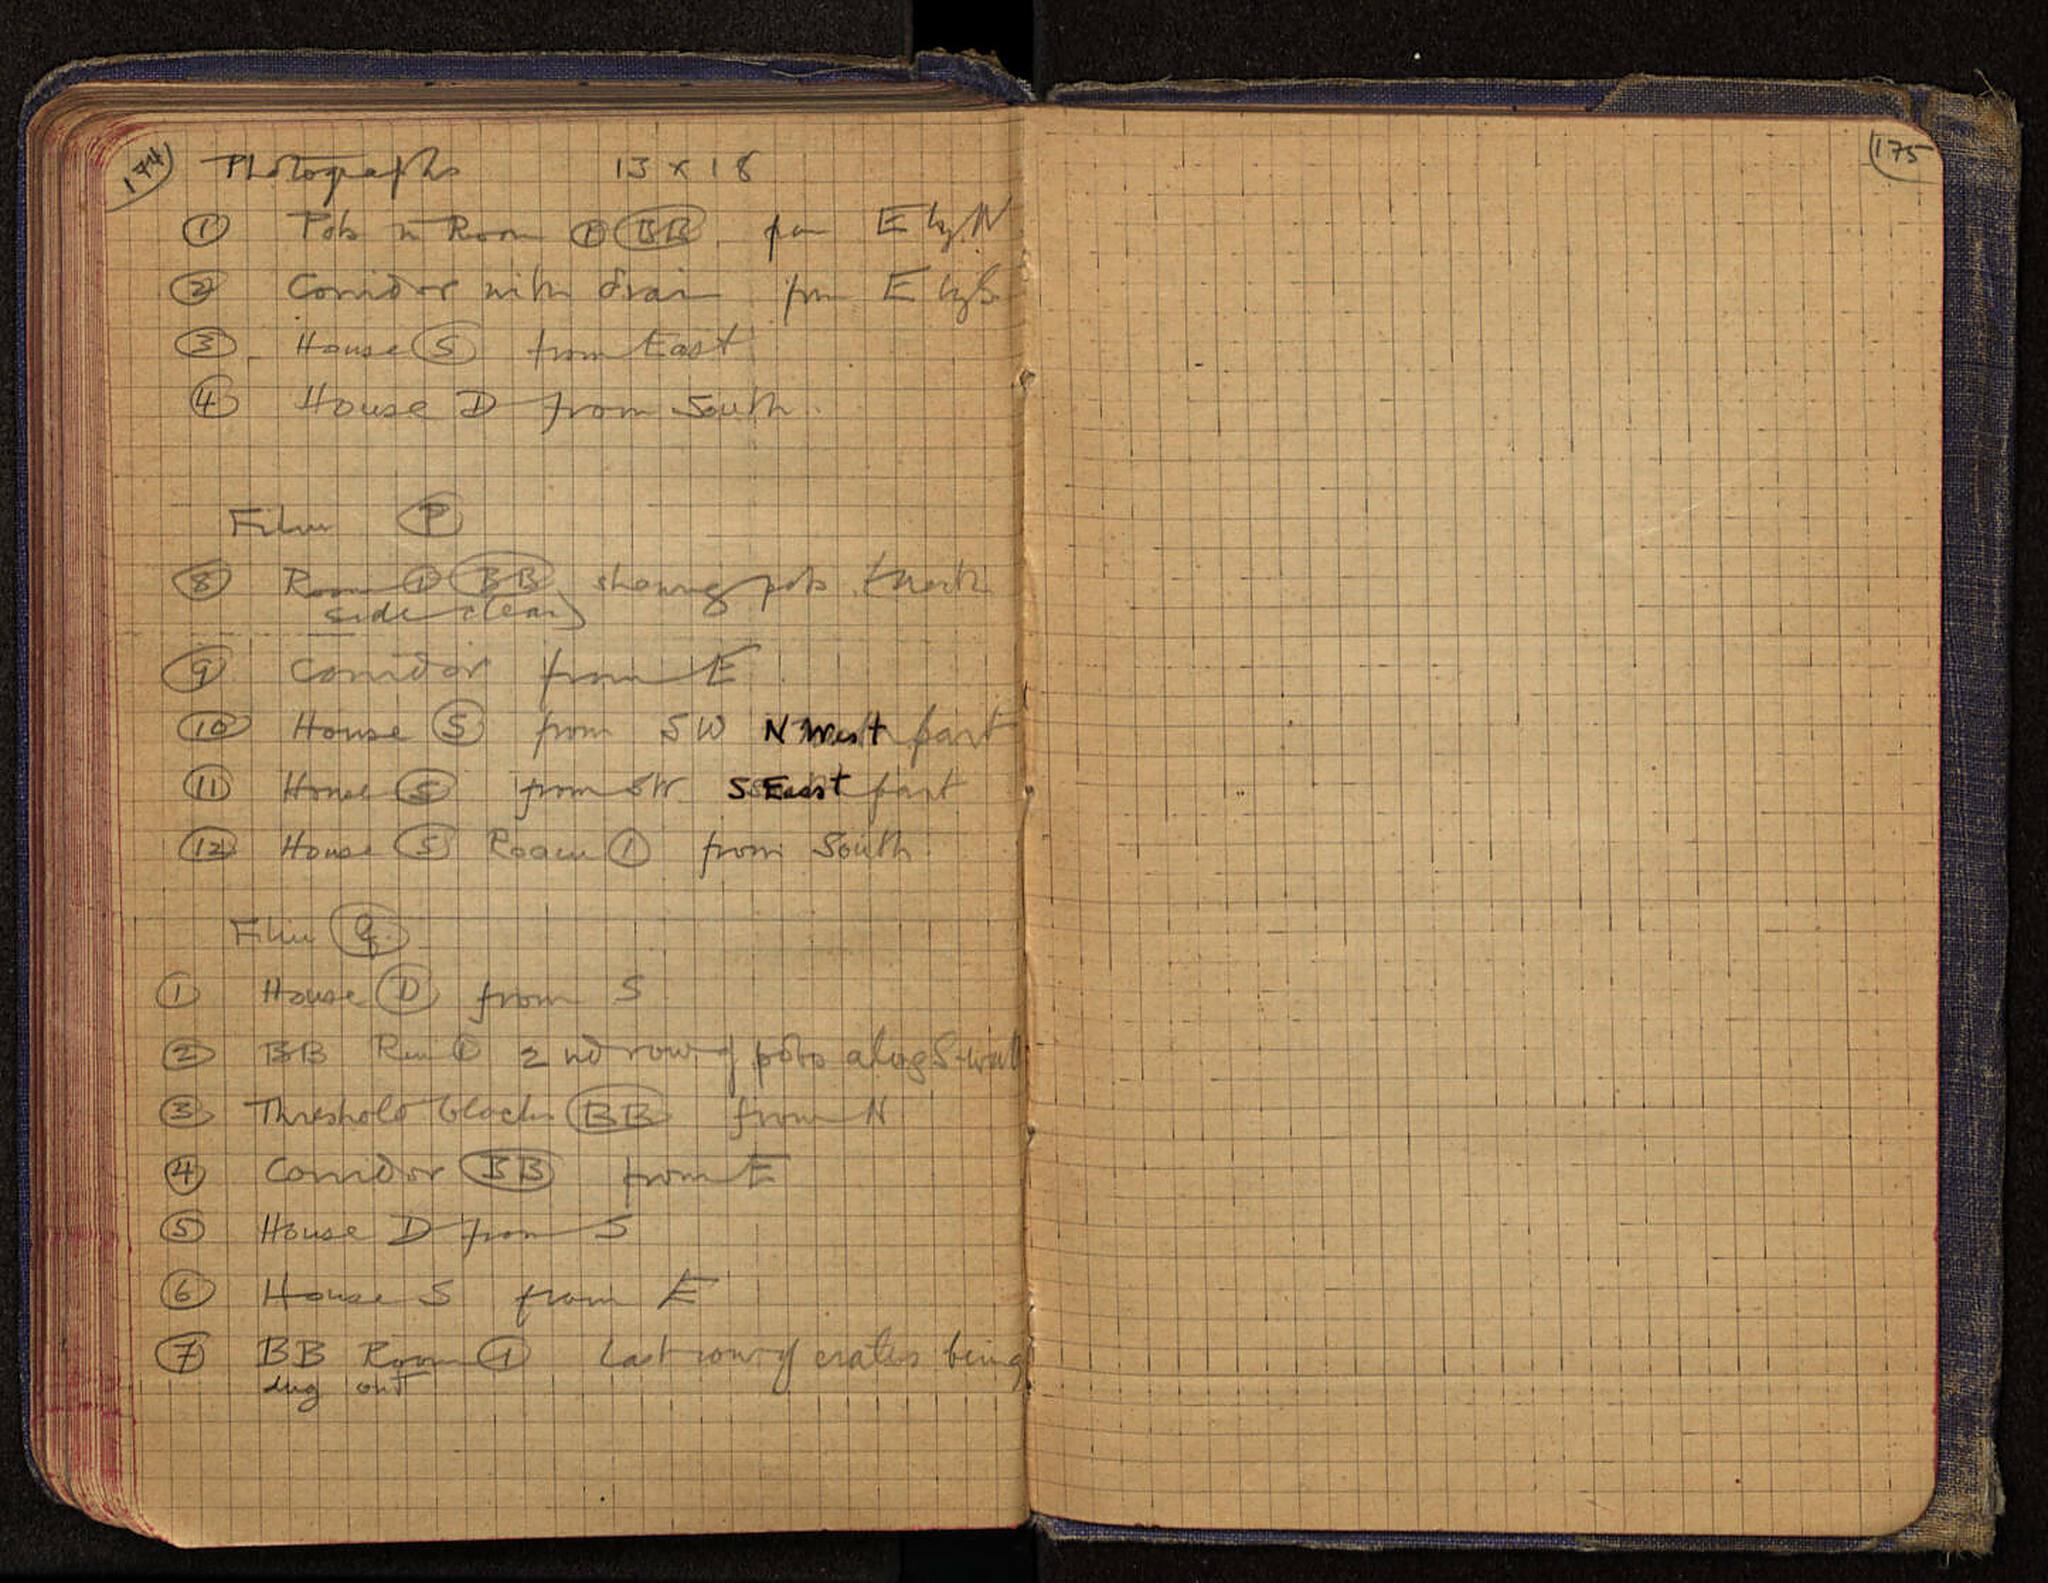 174
Photographs 13 x 18
① Pots in Room ① BB from E by N
② Corridor with drain from E by S
③ House S from East
④ House D from South.
Film P
⑧ Room ① BB showing pots (North
side clear)
⑨ Corridor from E.
⑩ House S from SW N West part
⑪ House S from SW S East part
⑫ House S Room ① from South.
Film Q
① House D from S
② BB Rm ① 2nd row of pots along S wall
③ Threshold blocks BB from N
④ Corridor BB from E
⑤ House D from S
⑥ House S from E
⑦ BB Room ① Last row of crates being
dug out
175